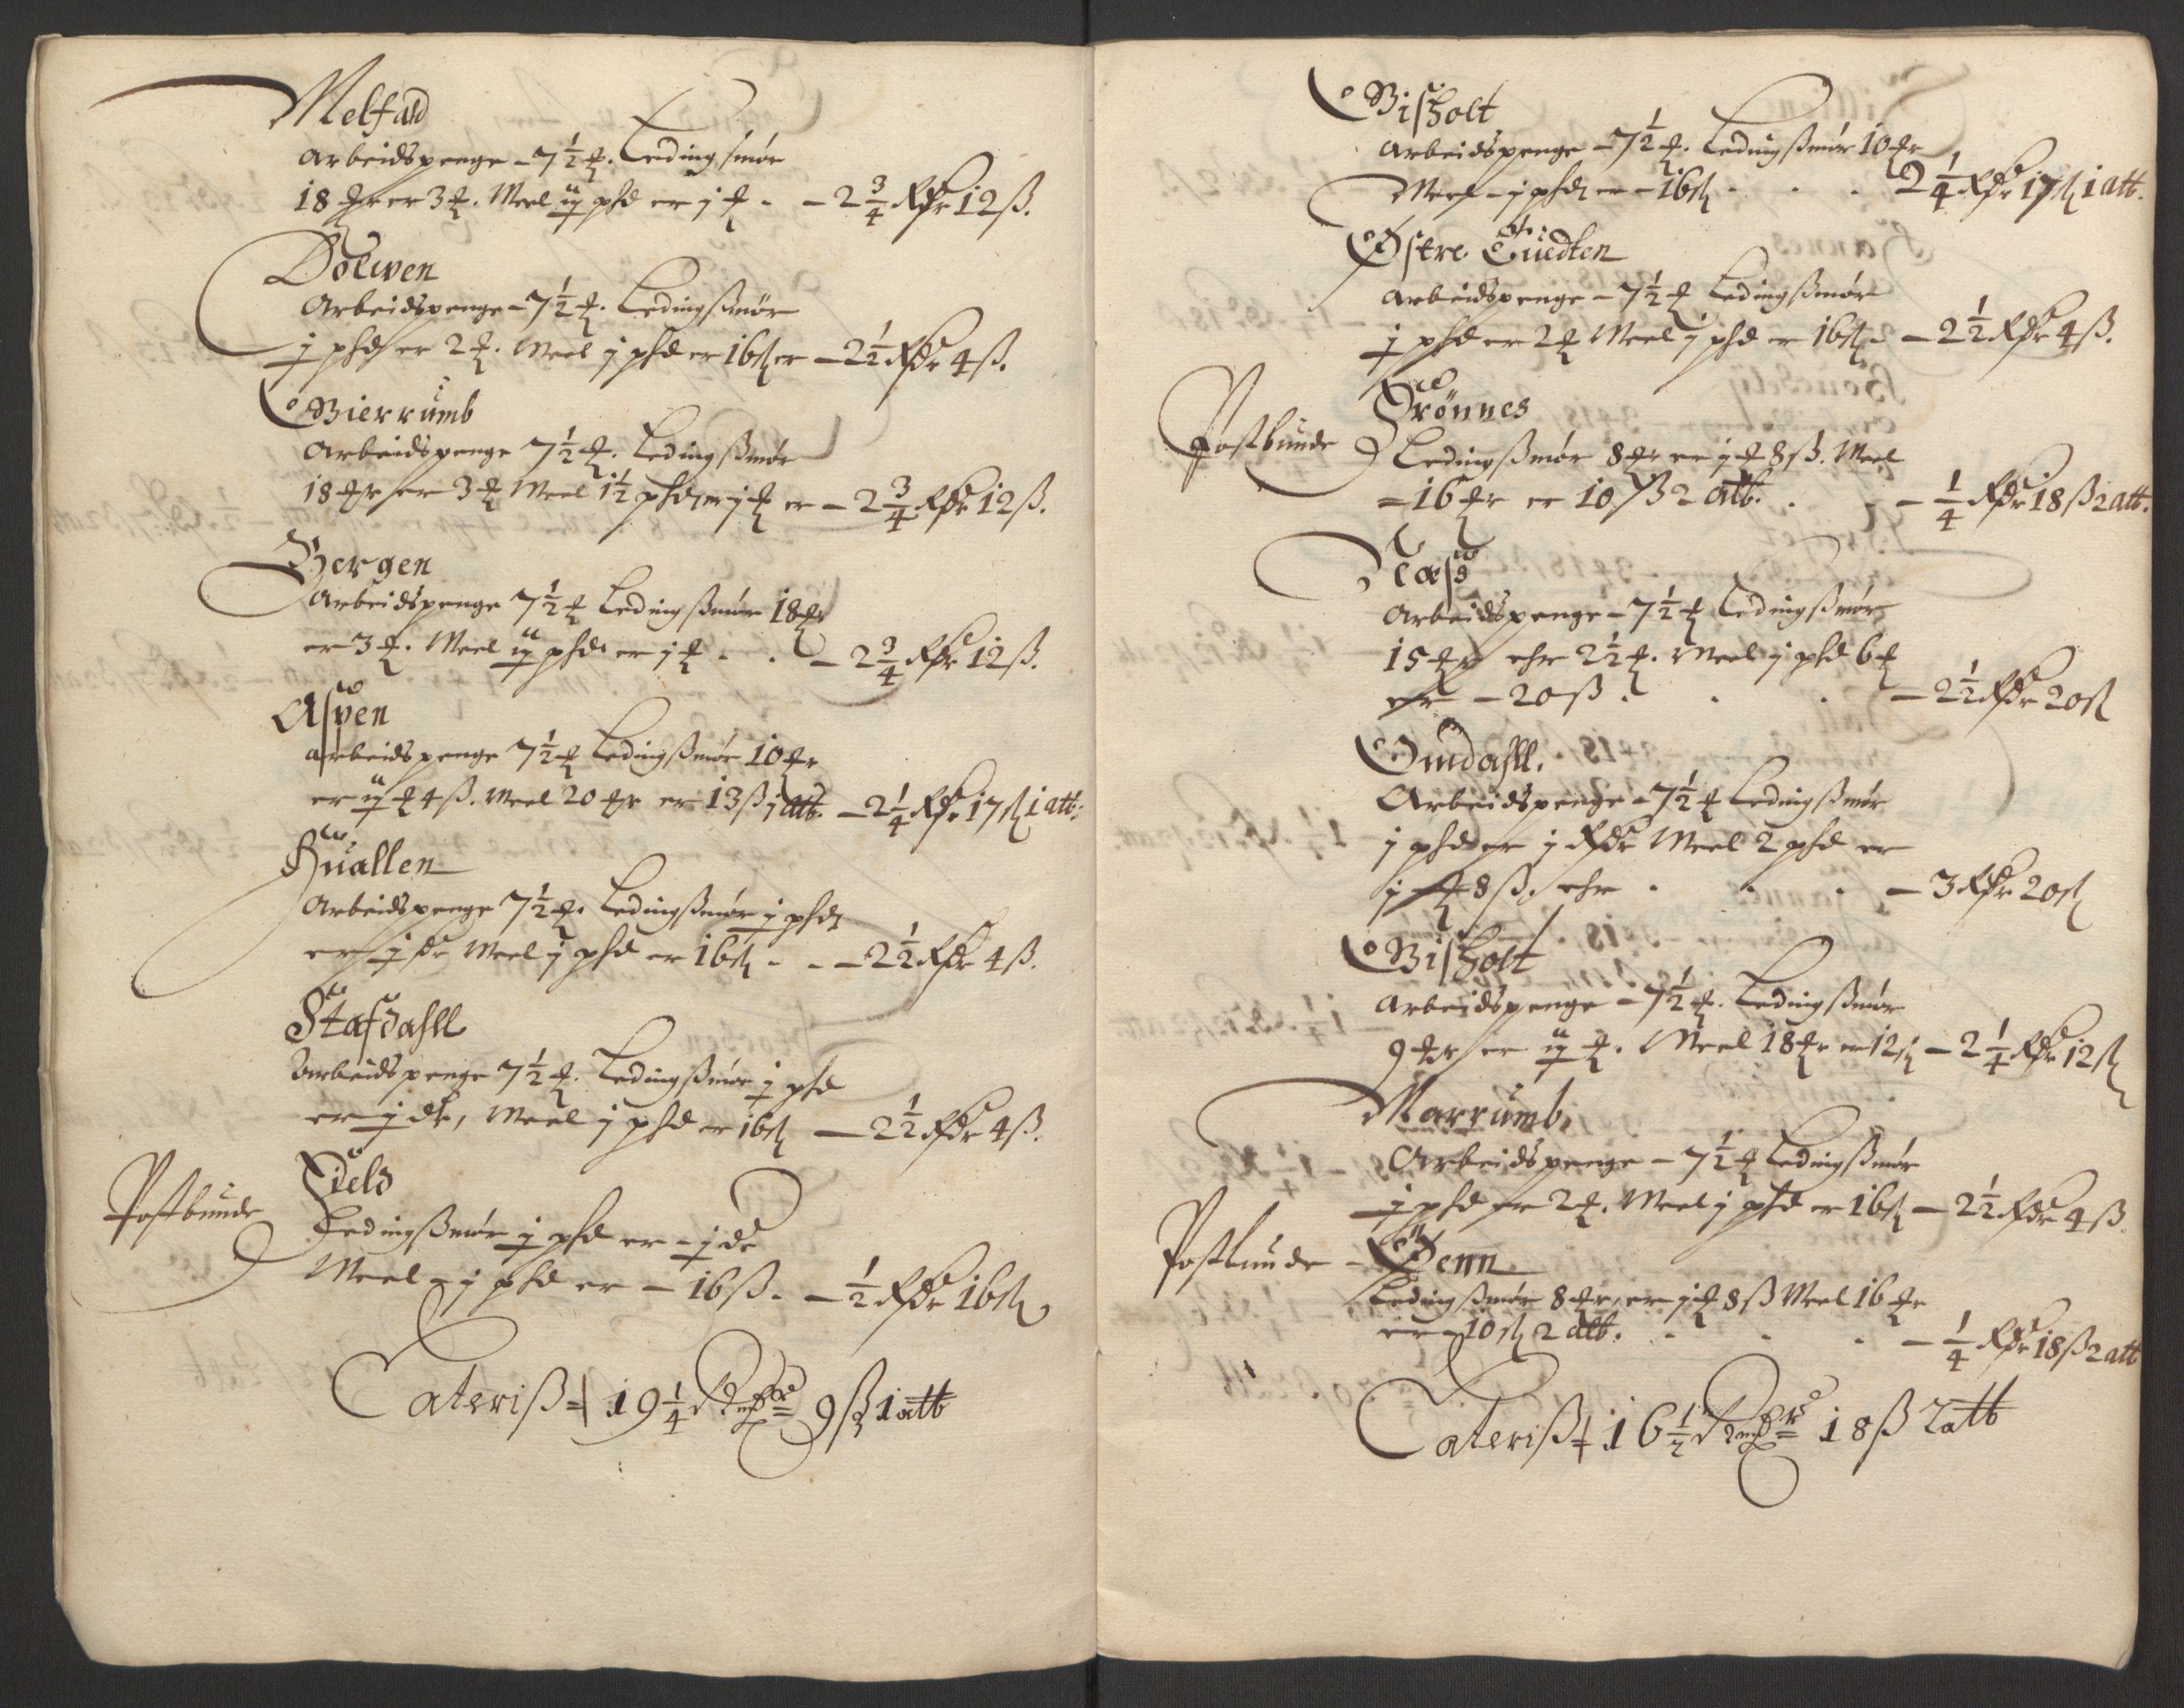 Melfald
Arbeidspenge - 7½ ℔. Leding smör
18 ℔r er 3 ℔. Meel ij phd er j ℔ - - 2¾ Rdr 12 ß.
Dolwen
Arbeidspenge - 7½ ℔. Ledingßmör
j phd er 2 ℔. Meel j phd er 16 ß er - 2½ Rdr 4 ß.
Bierrumb
Arbeidspenge 7½ ℔. Ledingßmör
18 ℔r er 3 ℔ Meel 1½ phd er j ℔ er - 2¾ Rdr 12 ß.
Bergen
Arbeidspenge 7½ ℔ Ledingßmör 18 ℔r
er 3 ℔. Meel ij phd er j ℔ - - - 2¾ Rdr 12 ß.
Aspen
Arbeidspenge 7½ ℔ Ledingßmör 10 ℔r
er ij ℔ 4 ß. Meel 20 ℔r er 13 ß j alb. - 2¼ Rdr 17 ß 1 alb.
Huallen
Arbeidspenge 7½ ℔. Ledingßmör j phd
er j dr Meel j phd er 16 ß - - - 2½ Rdr 4 ß.
Stafdahll
Arbeidspenge 7½ ℔. Ledingßmör j phd
er j dr, Meel j phd er 16 ß - 2½ Rdr 4 ß.
Postbunde
Field
Ledingßmör j phd er - j dr
Meel - j phd er - 16 ß. - ½ Rdr 16 ß
Lateriß = 19¼ Rixdr 9 ß 1 alb
Bisholt
Arbeidspenge - 7½ ℔. Ledingßmör 10 ℔r
Meel - j phd er - 16 ß - - - 2¼ Rdr 17 ß 1 alb.
Østre Tuedten
Arbeidspenge - 7½ ℔ Ledingßmör
j phd er 2 ℔ Meel j phd er 16 ß - - 2½ Rdr 4 ß.
Postbunde
Grönnes
Ledingßmör 8 ℔r er j ℔ 8 ß. Meel
= 16 ℔r er 10 ß 2 alb. . - ¼ Rdr 18 ß 2 alb.
Aasd
Arbeidspenge - 7½ ℔ Ledingßmör
15 ℔r ehr 2½ ℔. Meel j phd 6 ℔
er - 20 ß . . . - 2½ Rdr 20 ß
Omdahll.
Arbeidspenge - 7½ ℔ Ledingßmör
j phd er j Rdr Meel 2 phd er
j ℔ 8 ß. ehr . . . - 3 Rdr 20 ß
Bisholt
Arbeidspenge - 7½ ℔. Ledingßmör
9 ℔r er ij ℔. Meel 18 ℔r er 12 ß - 2¼ Rdr 12 ß
Marrumb
Arbeidspenge - 7½ ℔ Ledingßmör
j phd er 2 ℔. Meel j phd er 16 ß - 2½ Rdr 4 ß
Postbunde - Øenn
Ledingßmör 8 ℔r, er j ℔ 8 ß Meel 16 ℔r
er - 10 ß 2 alb. - - - - ¼ Rdr 18 ß 2 alb
Lateriß = 16½ Rixdr 18 ß 2 alb